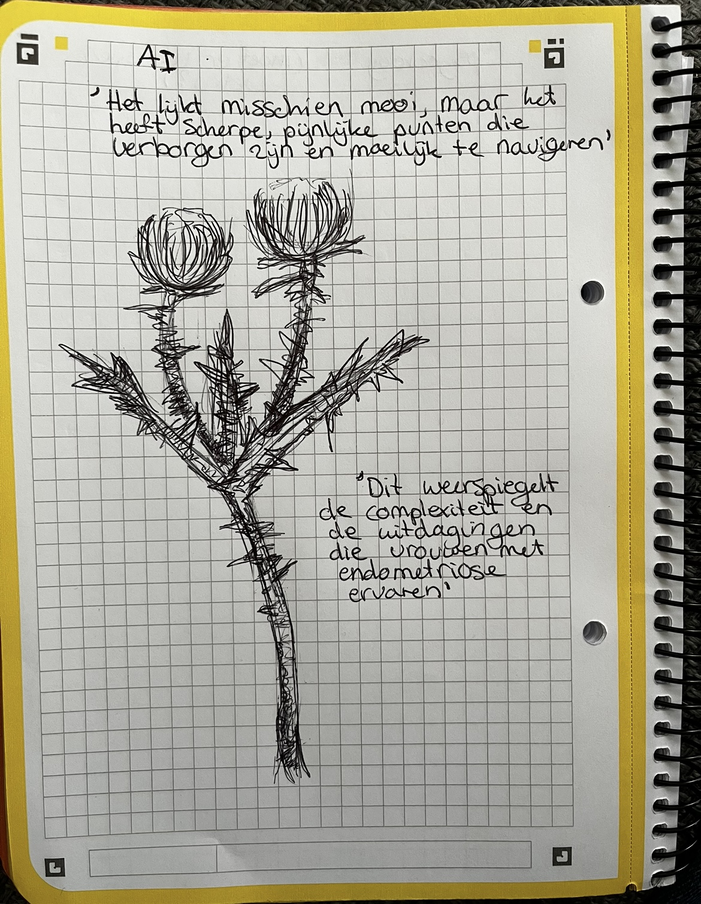 AI
'Het lijkt misschien mooi, maar het
heeft scherpe, pijnlijke punten die
verborgen zijn en moeilijk te navigeren'
'Dit weerspiegelt
de complexiteit en
de uitdagingen
die vrouwen met
endometriose
ervaren'